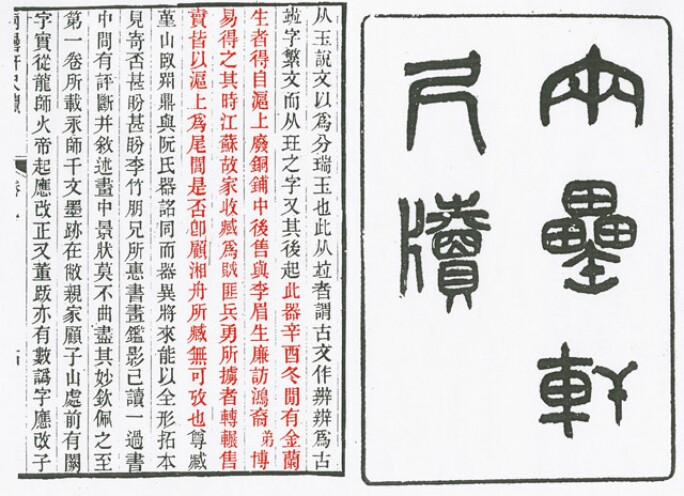 兩罍軒
尺牘
从玉說文以爲分瑞玉也此从竝者謂古文作辨辨爲古
竝字繁文而从玨之字又其後起此器辛酉冬閒有金蘭
生者得自滬上廢銅鋪中後售與李眉生廉訪鴻裔弟博
易得之其時江蘇故家收臧爲賊匪兵勇所擄者轉輾售
賣皆以滬上爲尾閭是否卽顧湘舟所臧無可攷也尊臧
堇山鼎與阮氏器詺同而器異將來能以全形拓本
見寄否甚盼甚盼李竹朋兄所惠書畫鑑影已讀一過書
中間有評斷并敘述畫中景狀莫不曲盡其妙欽佩之至
第一卷所載永師千文墨跡在敝親家顧子山處前有闕
字實從龍師火帝起應改正又董跋亦有數譌字應改子